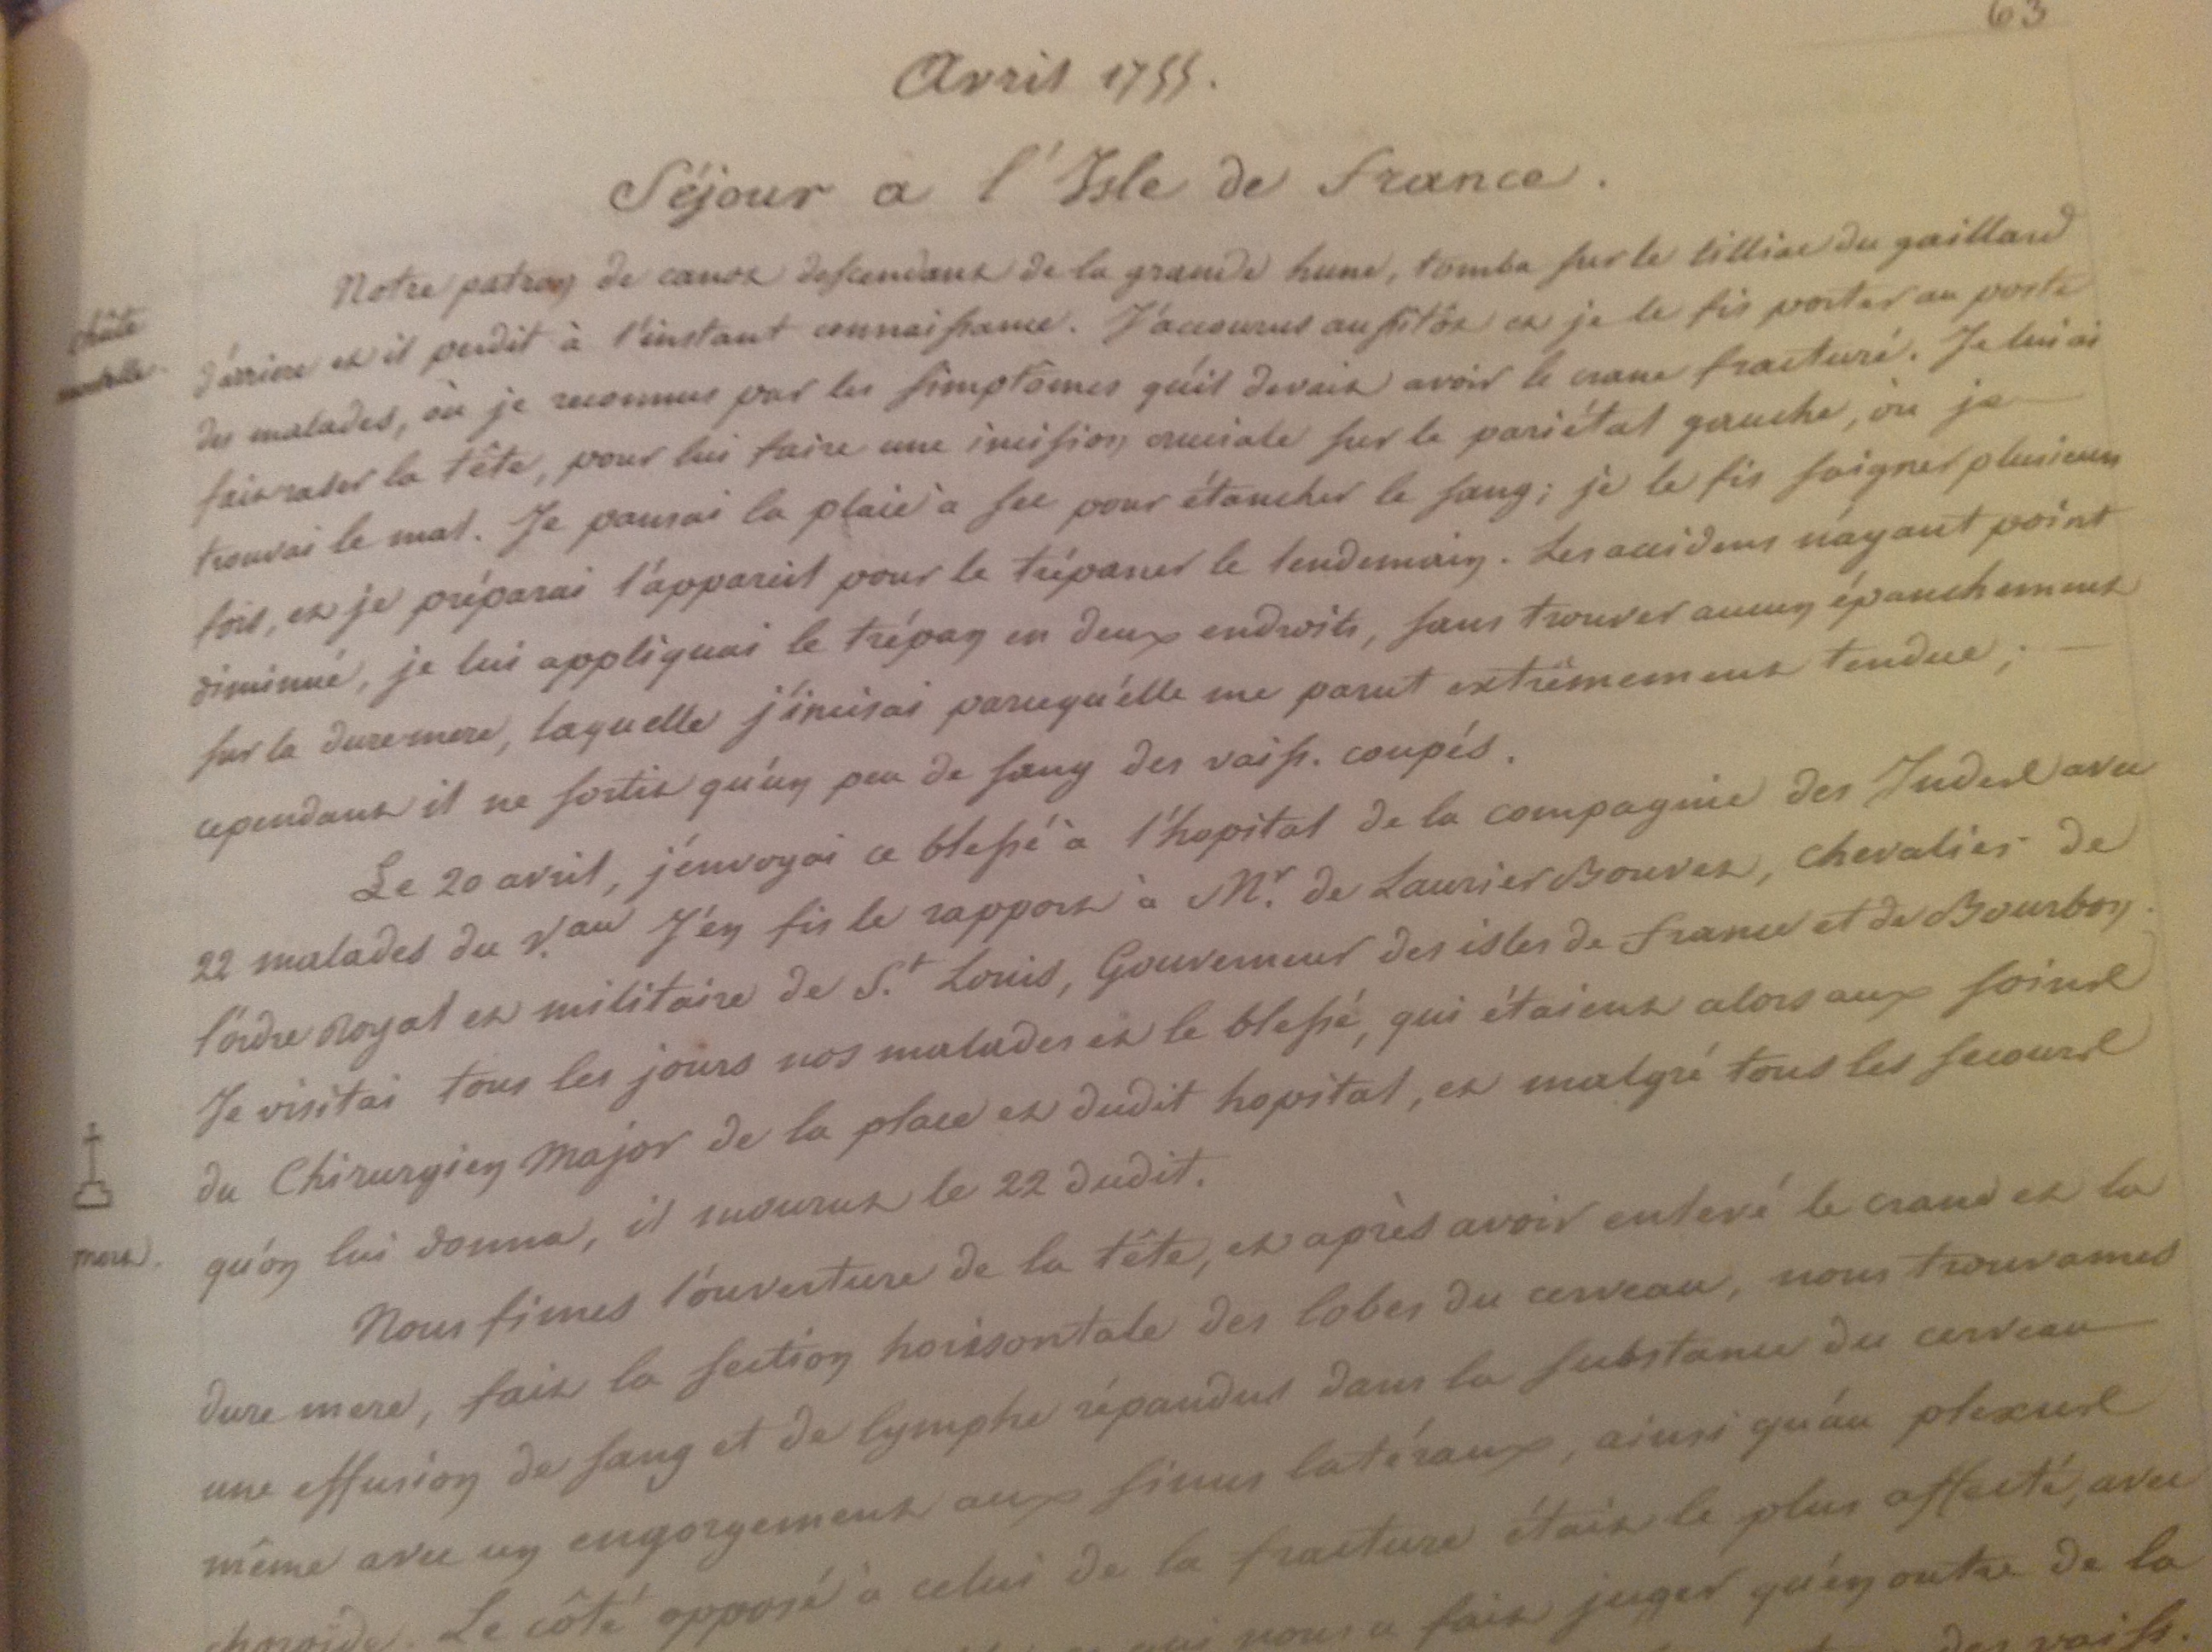 63
Avril 1755.
Séjour a l'Isle de france.
chûte
mortelle.
Notre patron de canot descendant de la grande hune, tomba sur le tilliac du gaillard
d'arriere et il perdit à l'instant connaissance. J'accourus aussitôt et je le fis porter au poste
des malades, où je reconnus par les simptômes qu'il devait avoir le crane fracturé. Je lui ai
fait raser la tête, pour lui faire une incision cruciale sur le pariétal gauche, où je
trouvai le mal. Je pansai la plaie à sec pour étancher le sang; je le fis saigner plusieurs
fois, et je préparai l'appareil pour le trépaner le lendemain. Les accidens n'ayant point
diminué, je lui appliquai le trépan en deux endroits, sans trouver aucun épanchement
sur la duremere, laquelle j'incisai parcequ'elle me parut extrêmement tendue;
cependant il ne sortit qu'un peu de sang des vaiss. coupés.
Le 20 avril, j'envoyai ce blessé à l'hopital de la compagnie des Indes avec
22 malades du V.au J'en fis le rapport à Mr. de Laurier Bouvet, chevalier de
l'ordre Royal et militaire de S.t Louis, Gouverneur des isles de france et de Bourbon.
Je visitai tous les jours nos malades et le blessé, qui étaient alors aux soins
du Chirurgien Major de la place et dudit hopital, et malgré tous les secours
qu'on lui donna, il mourut le 22 dudit.
mort.
Nous fimes l'ouverture de la tête, et après avoir enlevé le crane et la
dure mere, fait la section horisontale des lobes du cerveau, nous trouvames
une effusion de sang et de lymphe répandus dans la substance du cerveau
même avec un engorgement aux sinus latéraux, ainsi qu'au plexus
choroide. Le côté opposé à celui de la fracture était le plus affecté, avec
qui nous a fait juger qu'en outre de la
des vaiss.